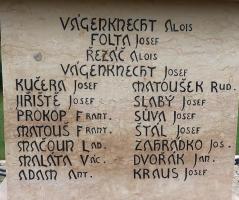 VÁGENKNECHT ALOIS
FOLTA JOSEF
ŘEZÁČ ALOIS
VÁGENKNECHT JOSEF
KUČERA JOSEF MATOUŠEK RUD.
JIŘIŠTĚ JOSEF SLABÝ JOSEF
PROKOP FRANT. SŮVA JOSEF
MATOUŠ FRANT. ŠTÁL JOSEF
MAČOUN LAD. ZAHRÁDKO JOS.
MALÁTA VÁC. DVOŘÁK JAN.
ADAM ANT. KRAUS JOSEF